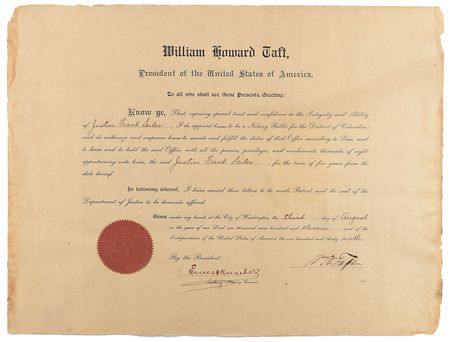 William Howard Taft,
President of the United States of America,
To all who shall see these Presents, Greeting:
Know ye, That reposing special trust and confidence in the Integrity and Ability
of Justin Frank Seiler, I do appoint him to be a Notary Public for the District of Columbia;
and do authorize and empower him to execute and fulfill the duties of that Office according to Law, and
to have and to hold the said Office, with all the powers, privileges, and emoluments thereto of right
appertaining unto him, the said Justin Frank Seiler for the term of five years from the
date hereof.
In testimony whereof, I have caused these letters to be made Patent and the seal of the
Department of Justice to be hereunto affixed.
Given under my hand, at the City of Washington, the third day of August
in the year of our Lord one thousand nine hundred and eleven and of the
Independence of the United States of America the one hundred and thirty sixth.
By the President:
Wm H Taft
Ernest Knaebel
Acting Attorney General